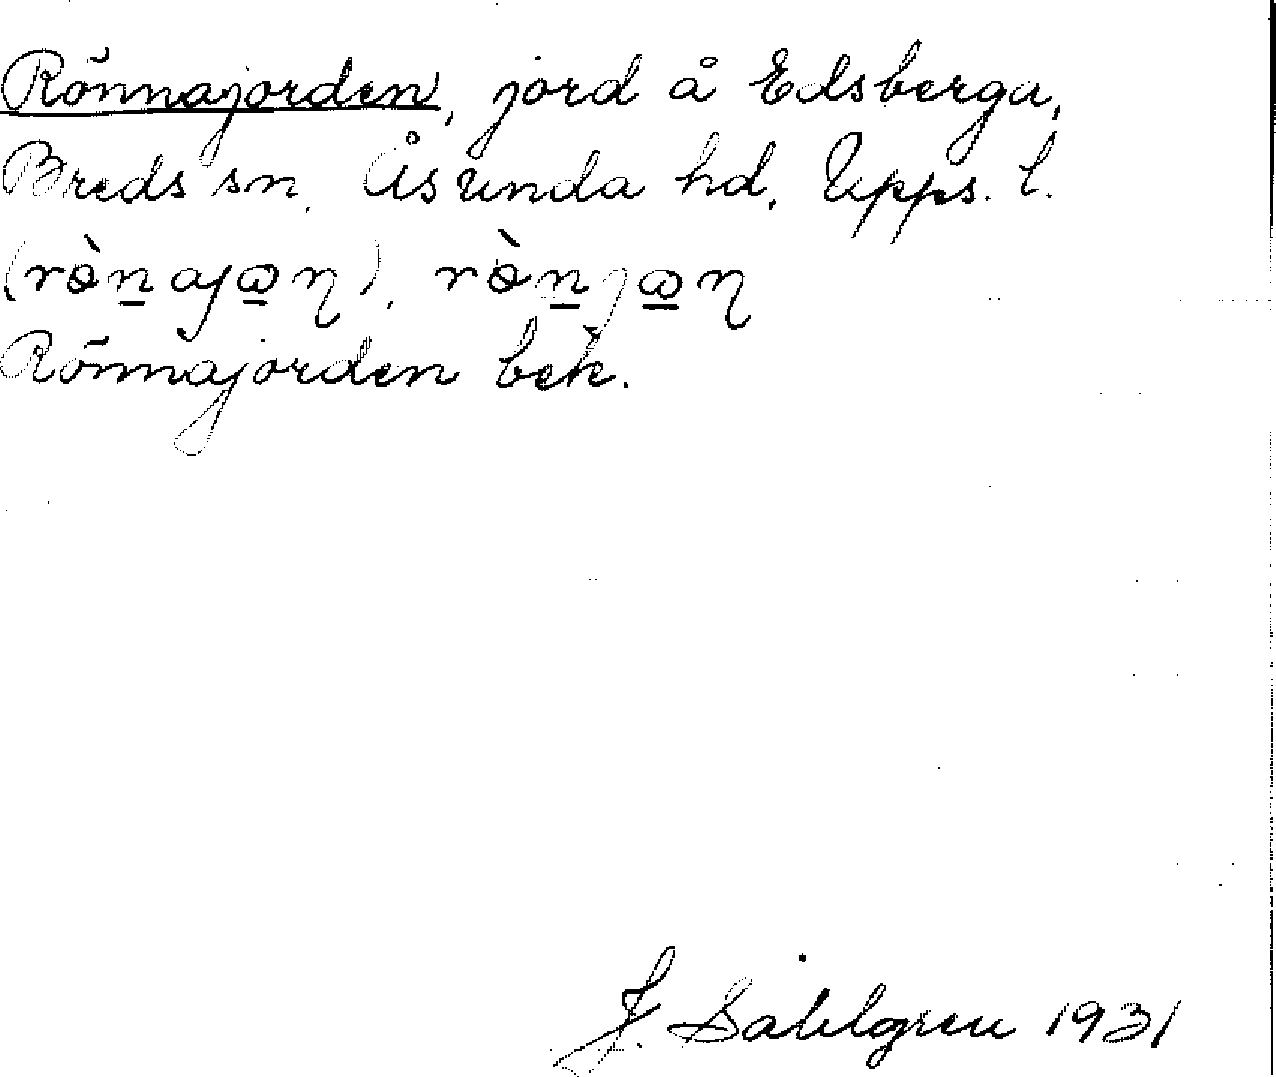 Rönnajorden, jord å Edsberga,
Breds sn. Åsunda hd. Upps. l.
(rὸ̀n̲ajꞷ̲η), rὸ̀n̲jꞷ̲η
Rönnajorden bek.
J. Sahlgren 1931